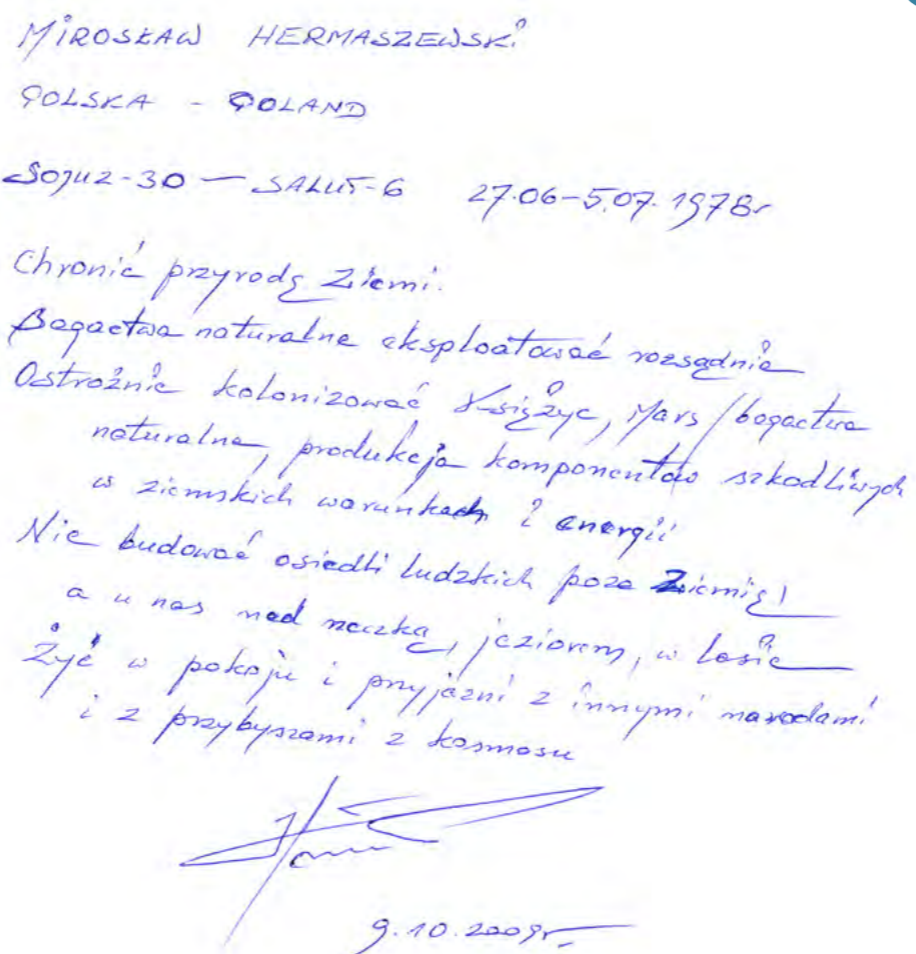 MIROSŁAW HERMASZEWSKI
POLSKA - POLAND
SOJUZ-30 — SALUT-6 27.06-5.07.1978r
Chronić przyrodę Ziemi.
Bogactwa naturalne eksploatować rozsądnie
Ostrożnie kolonizować Księżyc, Mars /bogactwa
naturalne, produkcja komponentów szkodliwych
w ziemskich warunkach i energii
Nie budować osiedli ludzkich poza Ziemią!
a u nas nad rzeczką, jeziorem, w lesie
Żyć w pokoju i przyjaźni z innymi narodami
i z przybyszami z kosmosu
9.10.2009r